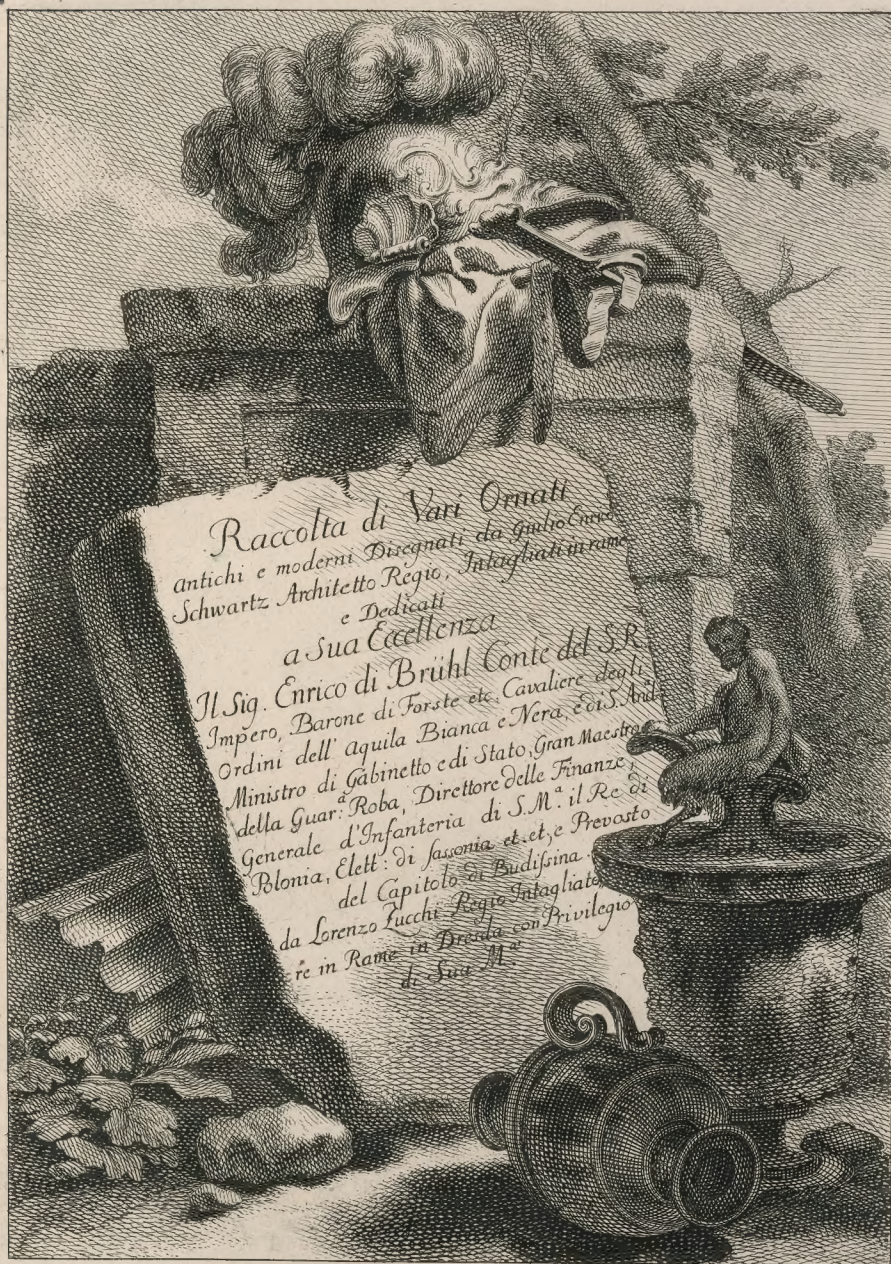 Raccolta di Vari Ornati
antichi e moderni Disegnati da Giulio Enrico
Schwartz Architetto Regio, Intagliati in rame
e Dedicati
a Sua Eccellenza
Il Sig. Enrico di Brühl Conte del S.R.
Impero, Barone di Forste etc, Cavaliere degli
Ordini dell' Aquila Bianca e Nera, e di S. And.
Ministro di Gabinetto e di Stato, Gran Maestro
della Guar:ᵃ Roba, Direttore delle Finanze,
Generale d'Infanteria di S. M.ᵃ il Re di
Polonia, Elett: di Sassonia et. et, e Prevosto
del Capitolo di Budissina
da Lorenzo Zucchi Regio Intagliato,
re in Rame in Dresda con Privilegio
di Sua M.ᵃ